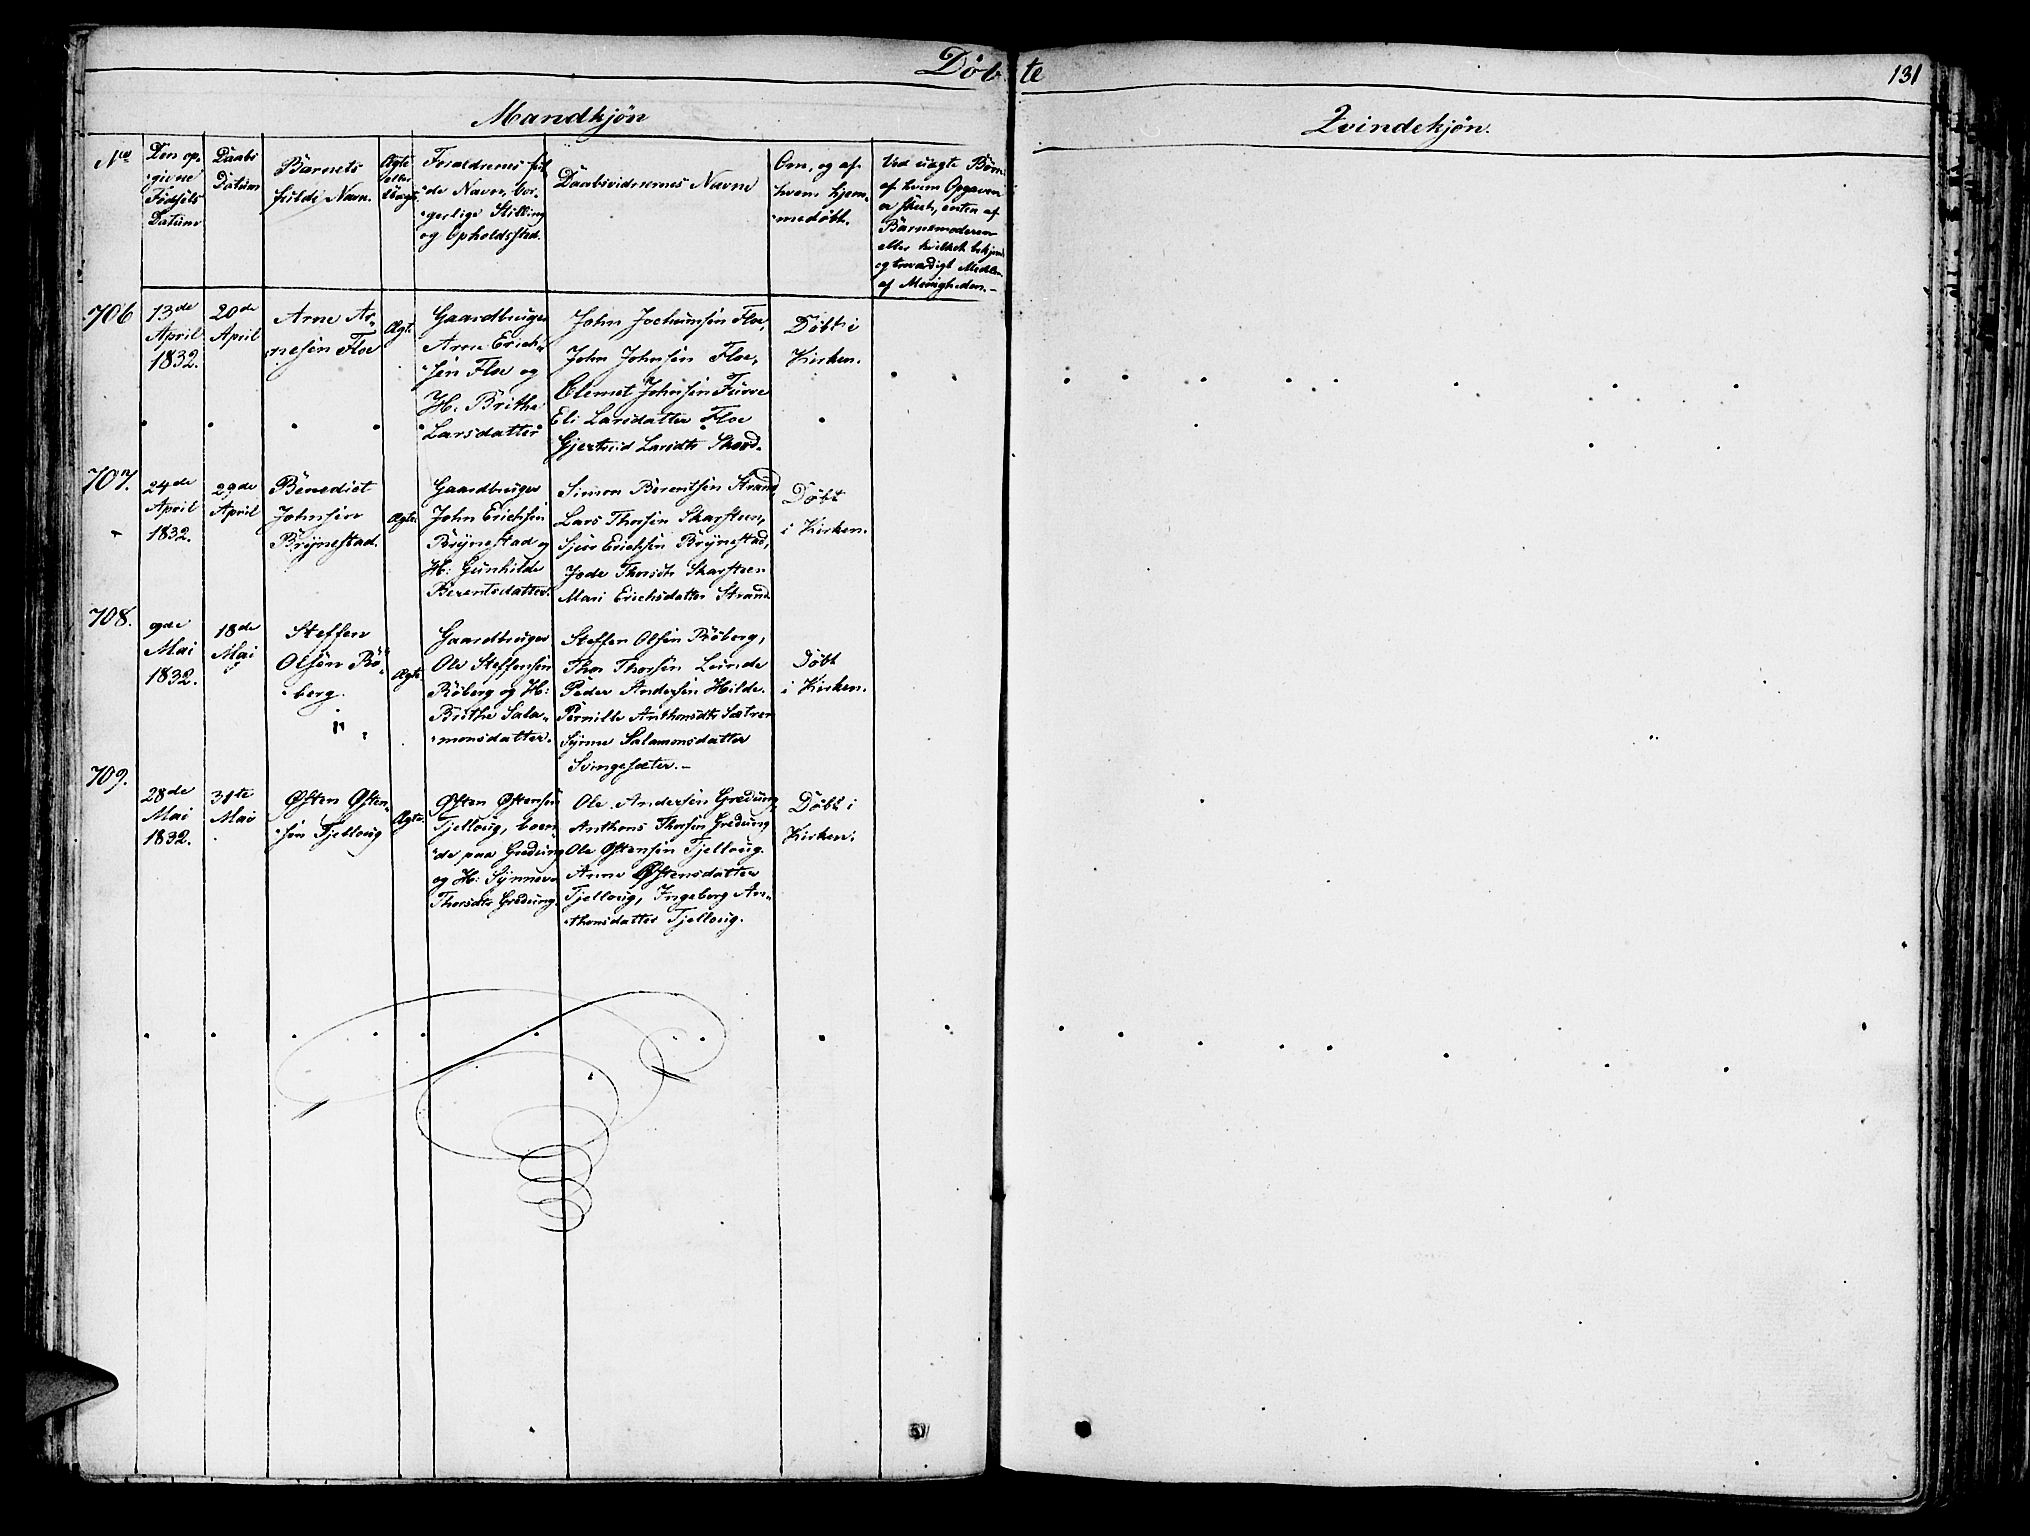 Døbte
131
Mandkjøn
Qvindekjøn.
No
Den op-
givne
Fødsels
Datum
Daabs
Datum
Barnets
fulde Navn.
Ægte
eller
Uægte
Forældrenes ful-
de Navn, bor-
gerlige Stilling
og Opholdssted.
Daabsvidnernes Navne
Om, og af
hvem hjem-
medøbt.
Ved uægte Børn
af hvem Opgaven
er skeet, enten af
Barnemoderen
eller hvilket bekjend
og troværdigt Medlem
af Menigheden.-
706
13de
April
1832.
20de
April
Arne Ar-
nesen Floe
Ægte
Gaardbruger
Arne Erich-
sen Floe og
H: Brithe
Larsdatter
John Jochumsen Floe,
John Johnsen Floe,
Clemet Johnsen
Eli Larsdatter Floe
Gjertrud Larsdtr
Døbt i
Kirken.
707.
24de
April
1832.
29de
April
Benedict
Johnsen
Brynestad.
Ægte
Gaardbruger
John Erichsen
Brynestad og
H: Gunhilde
Berentsdatter.
Simon Berentsen Strand,
Lars Thorsen Skarsteen,
Sjur Erichsen Brynestad,
Thorsdtr Skarsteen
Mari Erichsdatter Strand
Døbt
i Kirken.
708.
9de
Mai
1832.
18de
Mai
Steffen
Olsen Rø-
berg.
Ægte
Gaardbruger
Ole Steffensen
Røberg og H:
Brithe Sala-
monsdatter.
Steffen Olsen Røberg,
Thor Thorsen Lunde
Peder Andersen Hilde.
Pernille Anthonsdtr Sætren
Synne Salamonsdatter
Svingesæter.-
Døbt
i Kirken.
709.
28de
Mai
1832.
31te
Mai
Østen Østen-
sen Tjelloug
Ægte
Østen Østensen
Tjelloug, boen-
de paa Gredung
og H: Synneve
Thorsdtr Gredung.
Ole Andersen Gredung,
Anthons Thorsen Gredung
Ole Østensen Tjelloug.
Anne Østensdatter
Tjelloug, Ingeborg An-
thonsdatter Tjelloug.
Døbt i
Kirken.